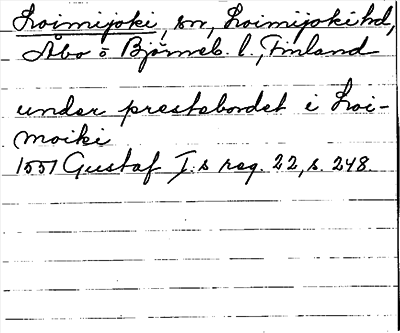 Loimijoki, sn, Loimijoki hd,
Åbo o Björneb. l., Finland
under prestebordet i Loi-
moiki
1551 Gustaf I:s reg. 22, s. 248.